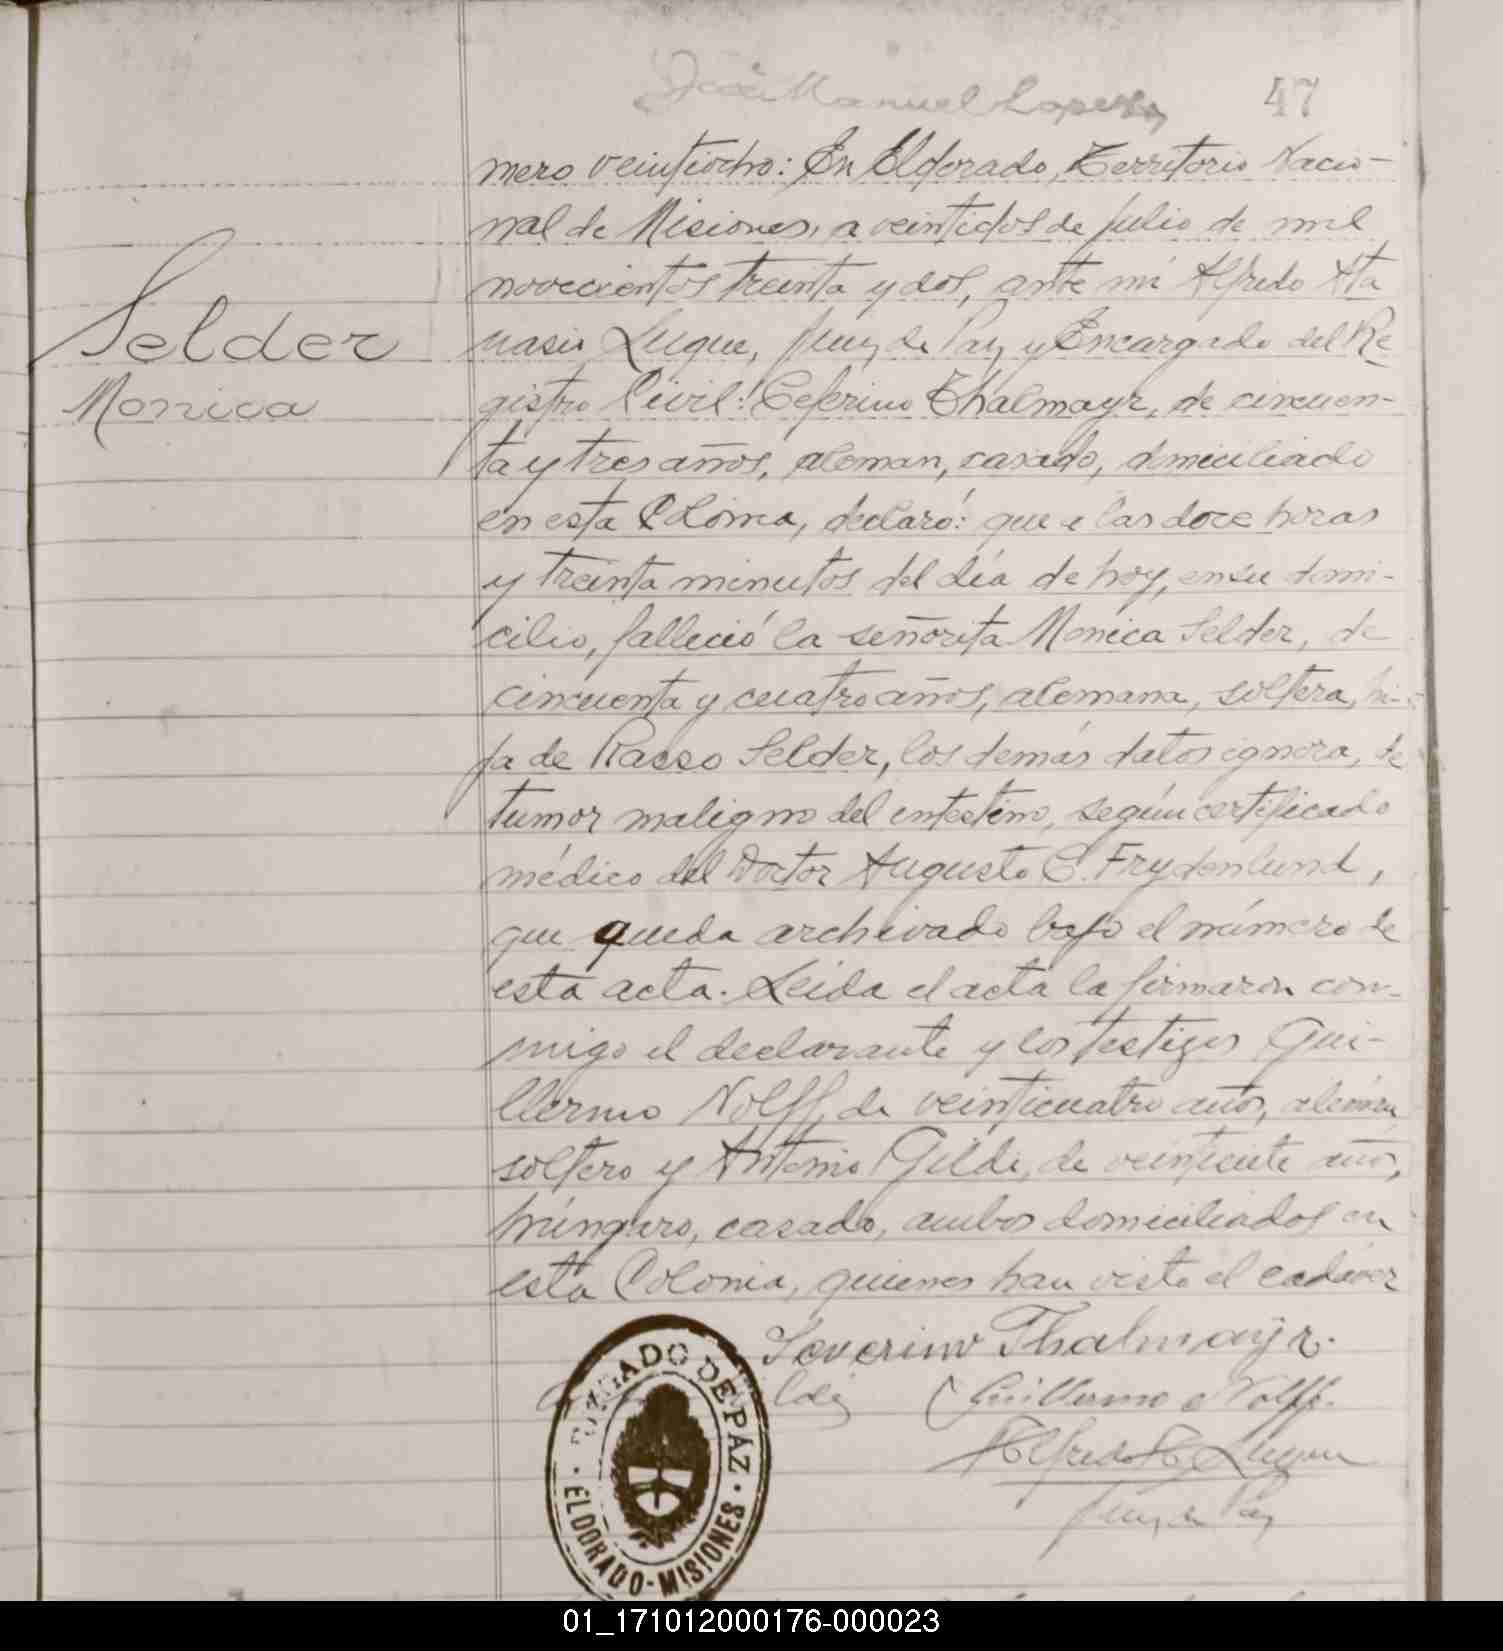 José Manuel Lopez
47
mero veintiocho: En Eldorado, Territorio Nacio-
nal de Misiones, a veintidos de Julio de mil
novecientos treinta y dos, ante mi Alfredo Ata
nasio Luque, Juez de Paz y Encargado del Re
gistro Civil: Ceferino Thalmayr, de cincuen-
ta y tres años, aleman, casado, domiciliado
en esta Colonia, declaró: que a las doce horas
y treinta minutos del día de hoy, en su domi-
cilio, falleció la señorita Monica Selder, de
cincuenta y cuatro años, alemana, soltera, hi-
ja de Rasso Selder, los demás datos ignora, de
tumor maligno del intestino, según certificado
médico del Doctor Augusto C. Frydenlund,
que queda archivado bajo el número de
esta acta. Leida el acta la firmaron con-
migo el declarante y los testigos Gui-
llermo Nolff, de veinticuatro años, alemán
soltero y Antonio Gildi, de años,
húngaro, casado, ambos domiciliados en
esta Colonia, quienes han visto el cadáver
Selder
Monica
Severino Thalmayr.
ldi Guillermo Nolff.
Alfredo A. Luque
Juez de Paz
JUZGADO DE PAZ · ELDORADO-MISIONES ·
01_171012000176-000023